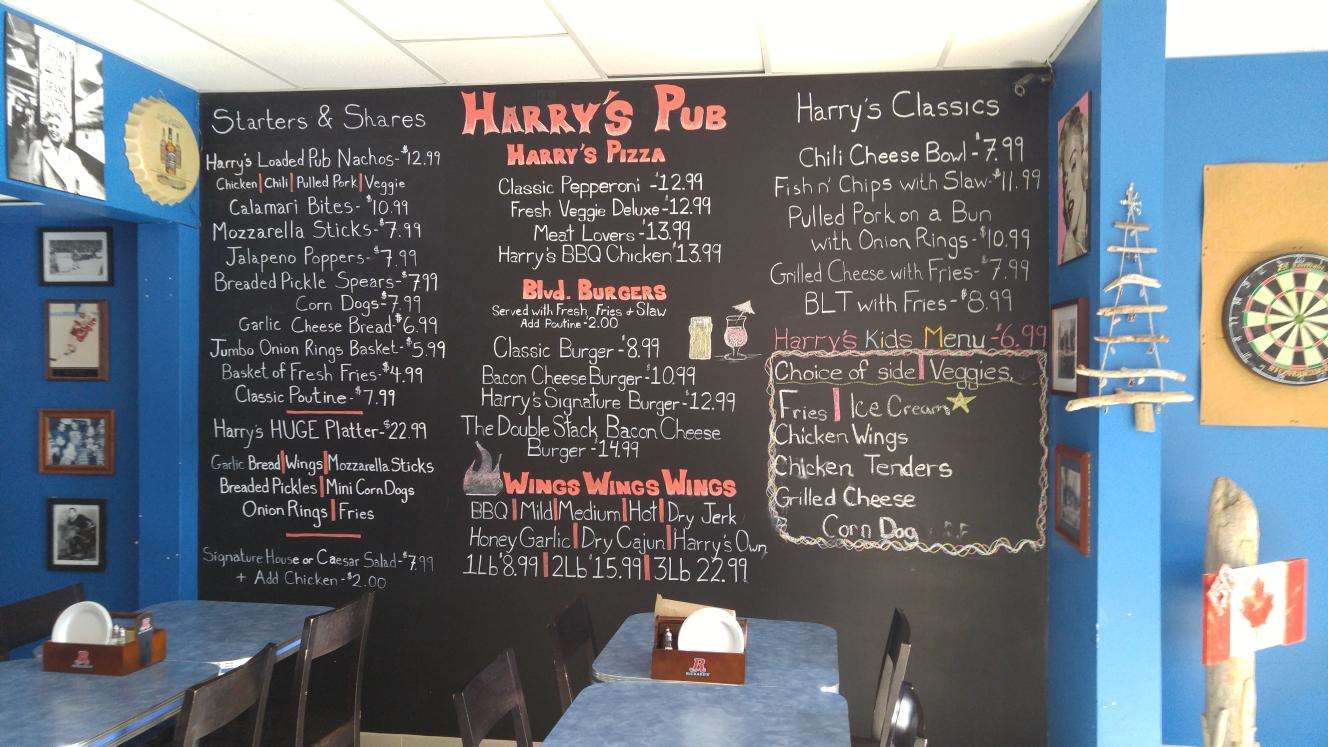 Starters & Shares
Harry's Loaded Pub Nachos-$12.99
Chicken|Chili|Pulled Pork|Veggie
Calamari Bites-$10.99
Mozzarella Sticks-$7.99
Jalapeno Poppers-$7.99
Breaded Pickle Spears-$799
Corn Dogs-$7.99
Garlic Cheese Bread-$6.99
Jumbo Onion Rings Basket-$5.99
Basket of Fresh Fries-$4.99
Classic Poutine-$7.99
Harry's HUGE Platter-$22.99
Garlic Bread|Wings|Mozzarella Sticks
Breaded Pickles|Mini Corn Dogs
Onion Rings|Fries
Signature House or Caesar Salad-$7.99
+ Add Chicken-$2.00
HARRY'S PUB
HARRY'S PIZZA
Classic Pepperoni -$12.99
Fresh Veggie Deluxe-$12.99
Meat Lovers-$13.99
Harry's BBQ Chicken $13.99
Blvd. BURGERS
Served with Fresh Fries + Slaw
Add Poutine-$2.00
Classic Burger-$8.99
Bacon Cheese Burger-$10.99
Harry's Signature Burger-$12.99
The Double Stack Bacon Cheese
Burger-$14.99
WINGS WINGS WINGS
BBQ|Mild|Medium|Hot|Dry Jerk
Honey Garlic|Dry Cajun|Harry's Own
1Lb $8.99|2Lb $15.99|3Lb 22.99
Harry's Classics
Chili Cheese Bowl-$7.99
Fish n' Chips with Slaw-$11.99
Pulled Pork on a Bun
with Onion Rings-$10.99
Grilled Cheese with Fries-$7.99
BLT with Fries-$8.99
Harry's Kids Menu-$6.99
Choice of side|Veggies,
Fries|Ice Cream
Chicken Wings
Chicken Tenders
Grilled Cheese
Corn Dog
R
RICKARD'S